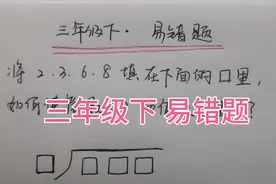 三年级下· 易错题
将 2.3.6.8 填在下面的口里,
如何
三年级下 易错题